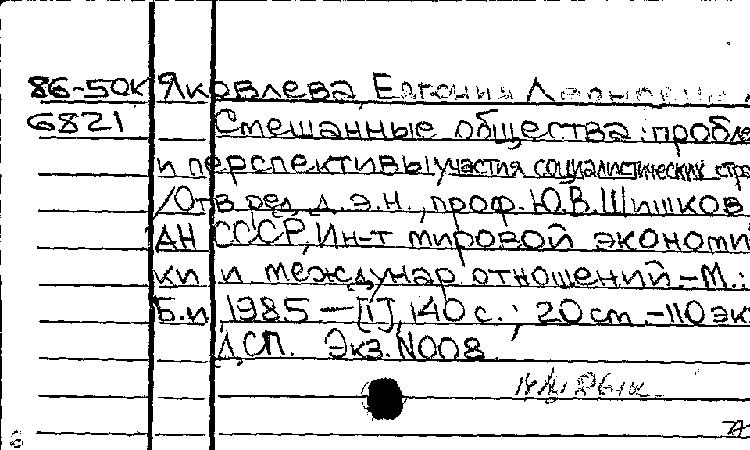 86-50К Яковлева, Евгения
6821 Смешанные общества: пробле
и перспективы участия социалистических стра
/Отв. ред. д.э.н., проф. Ю.В. Шишков
АН СССР, Ин-т мировой экономи
ки и междунар отношений.-М.:
Б.и, 1985 - [1], 140 с.; 20 см. -110 эк
ДСП. Экз. N008
6